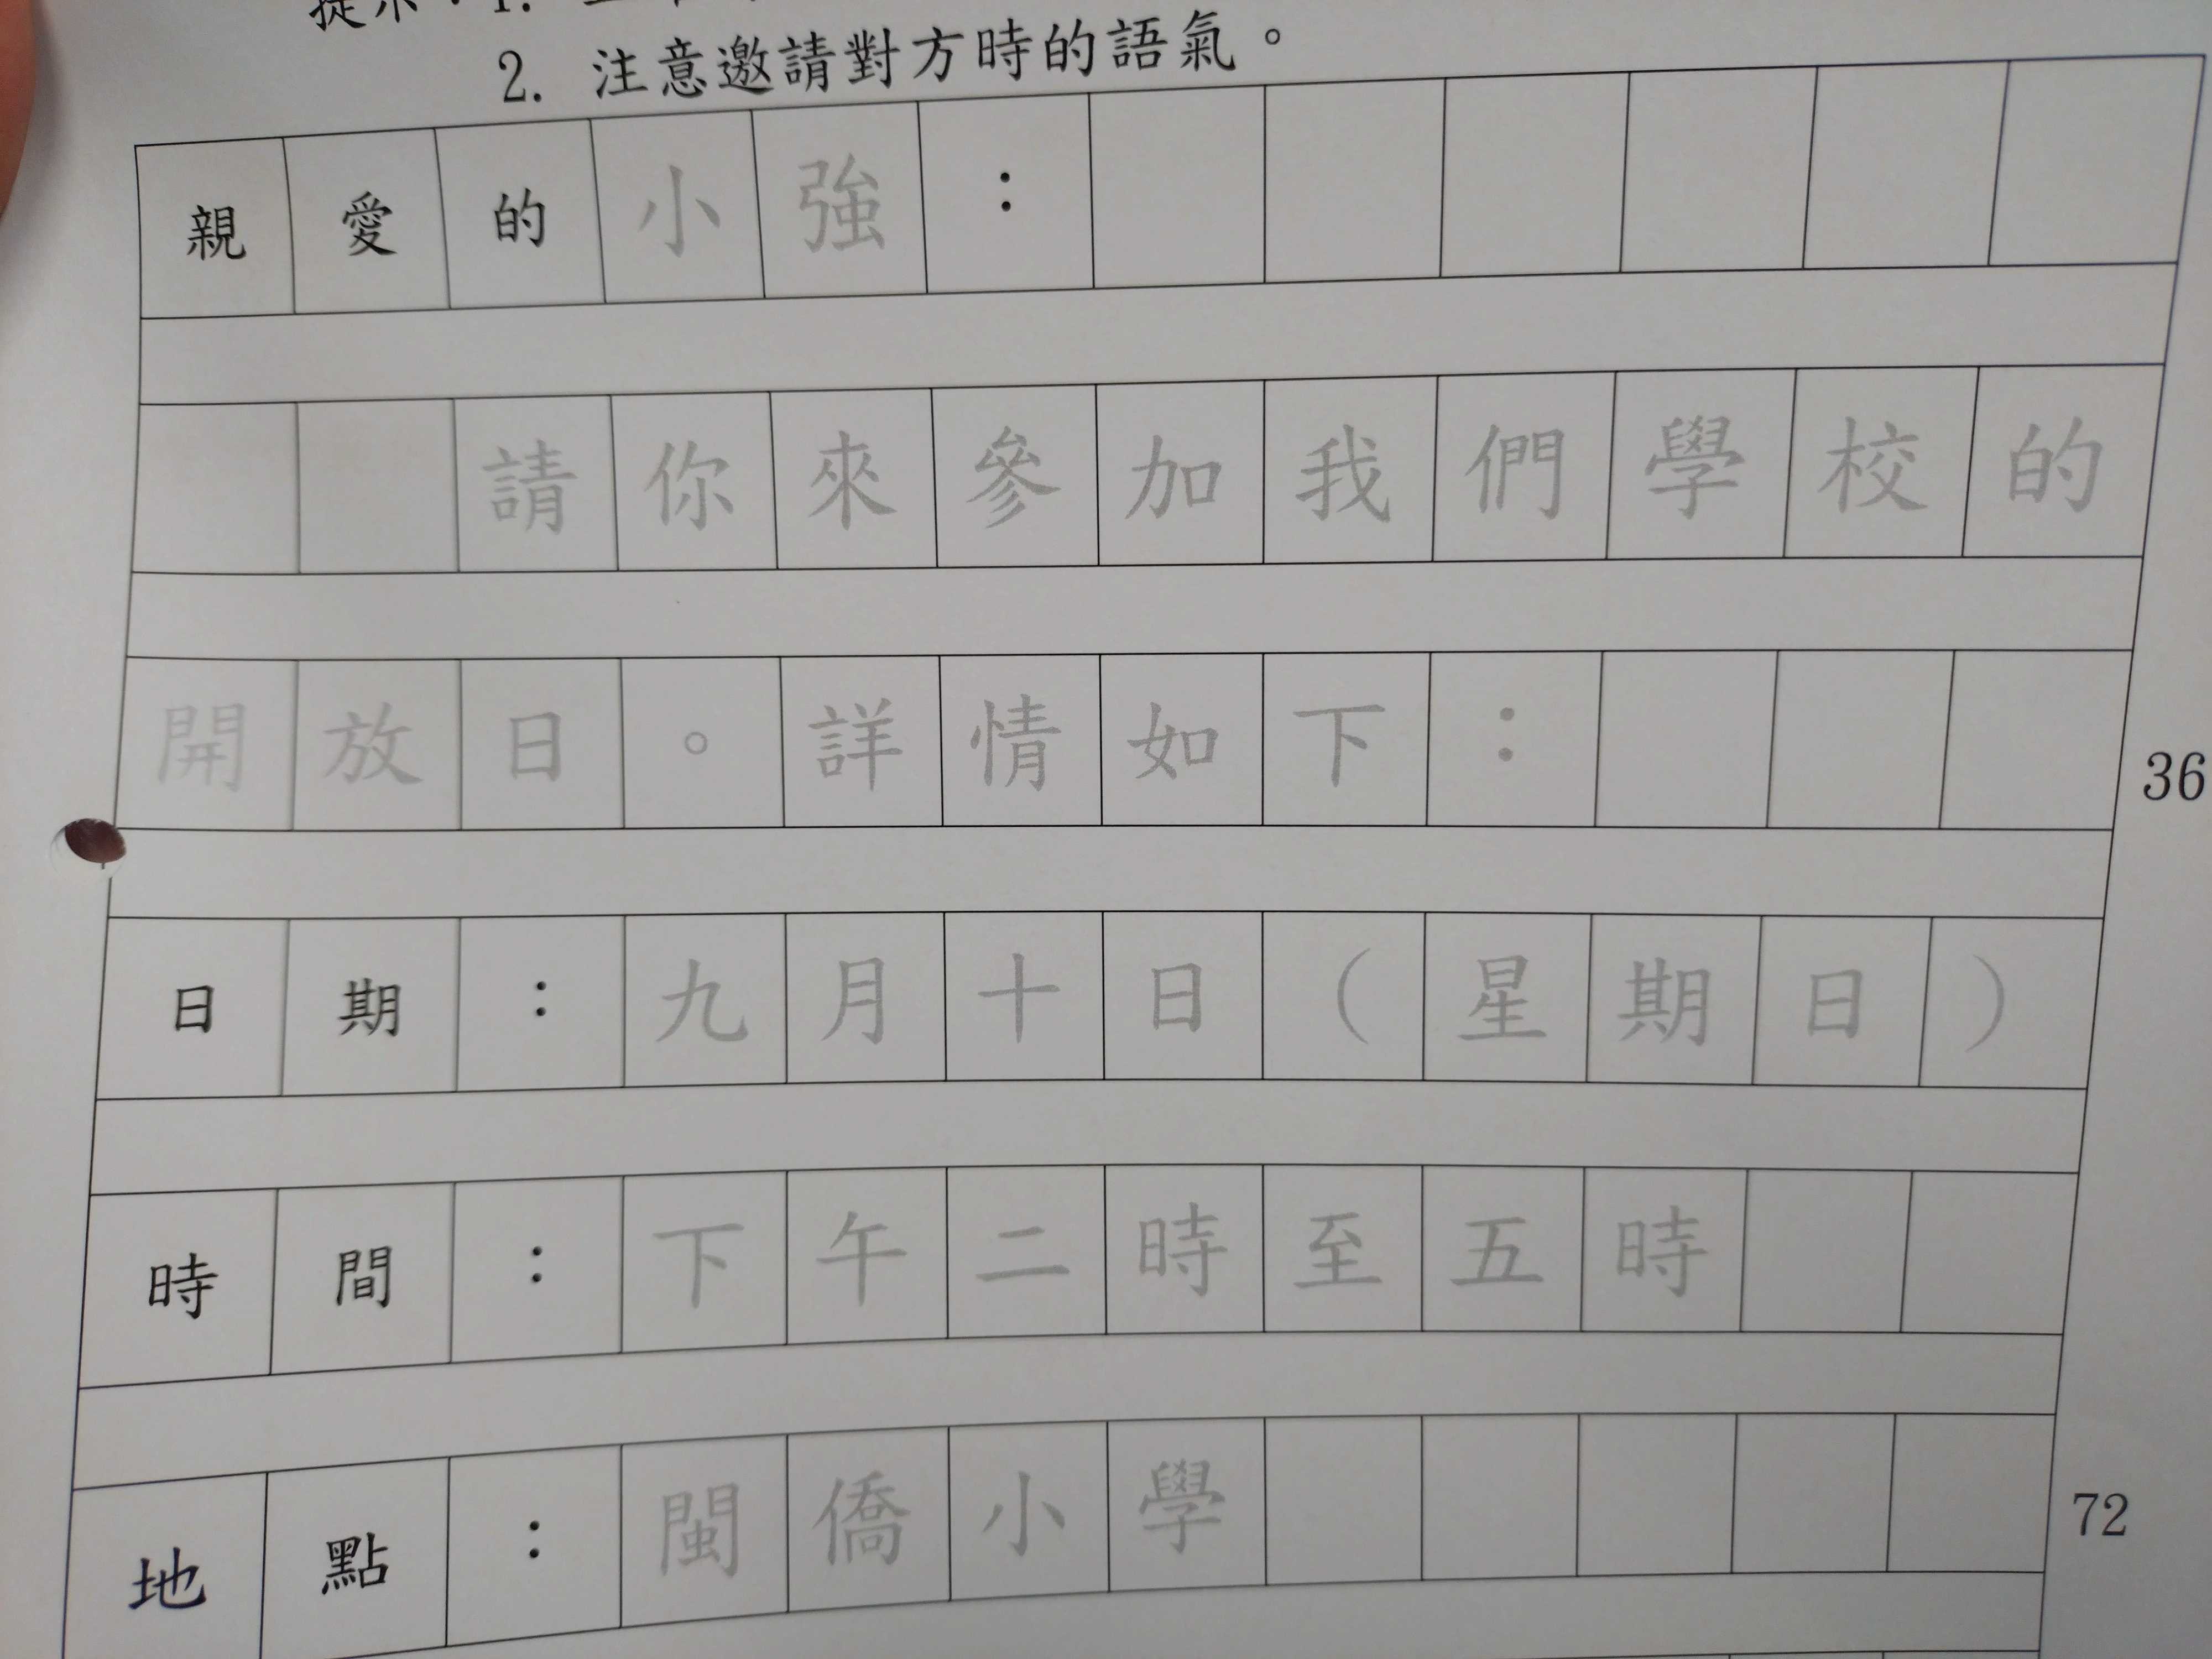 2. 注意邀請對方時的語氣。
親愛的小強：
請你來參加我們學校的
開放日。詳情如下：
36
日期：九月十日（星期日）
時間：下午二時至五時
地點：閩僑小學
72